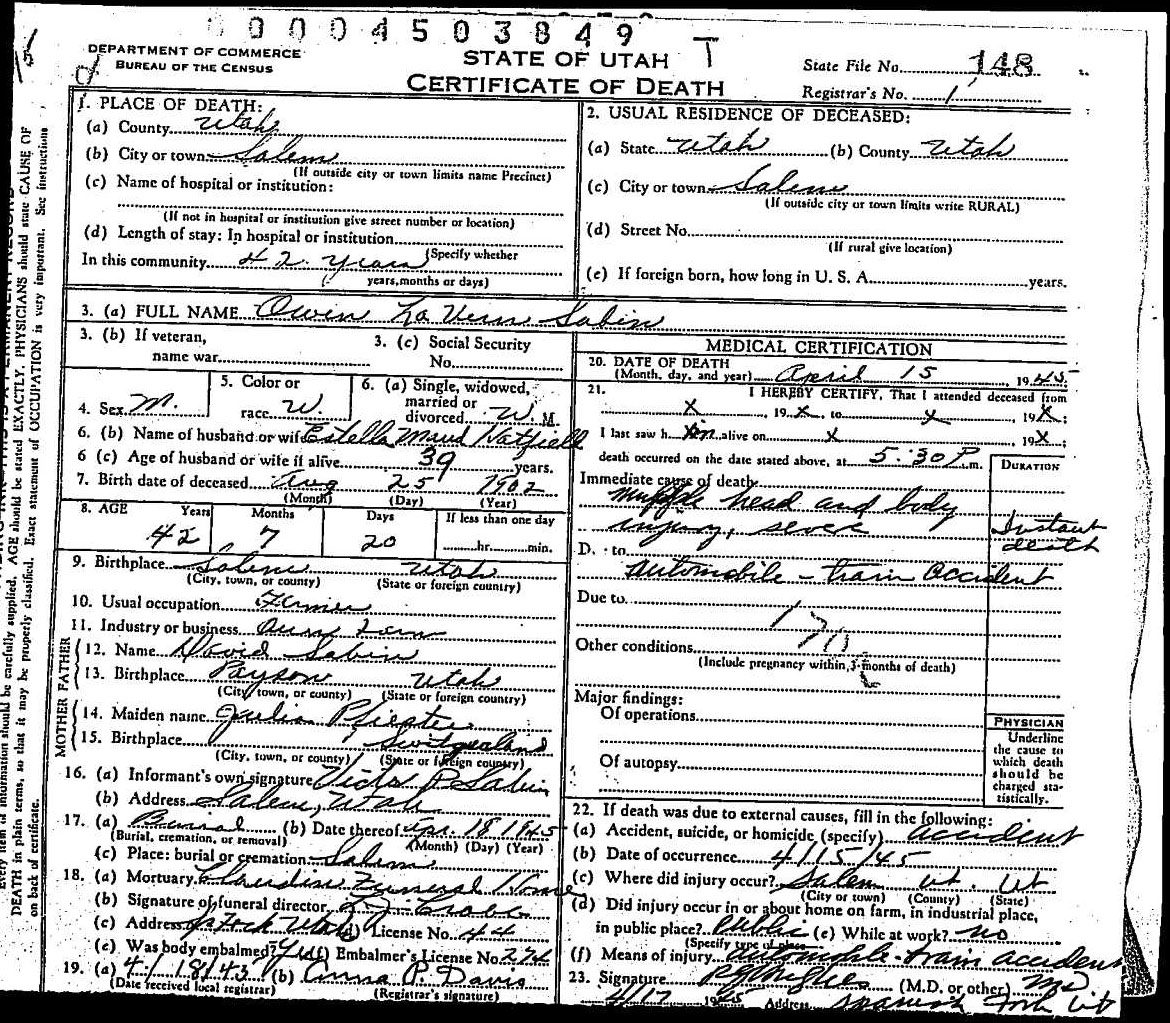 0004503849 T
DEPARTMENT OF COMMERCE
BUREAU OF THE CENSUS
STATE OF UTAH
CERTIFICATE OF DEATH
State File No. 148
Registrar's No. 1
1. PLACE OF DEATH:
(a) County Utah
(b) City or town Salem
(If outside city or town limits name Precinct)
(c) Name of hospital or institution:
(If not in hospital or institution give street number or location)
(d) Length of stay: In hospital or institution
(Specify whether
In this community 42 years
years, months or days)
2. USUAL RESIDENCE OF DECEASED:
(a) State Utah (b) County Utah
(c) City or town Salem
(If outside city or town limits write RURAL)
(d) Street No.
(If rural give location)
(e) If foreign born, how long in U. S. A. years.
3. (a) FULL NAME Owen La Vern Sabin
3. (b) If veteran,
name war
3. (c) Social Security
No.
4. Sex M.
5. Color or
race W.
6. (a) Single, widowed,
married or
divorced W. M
6. (b) Name of husband or wife Estella Maud Hatfiell
6 (c) Age of husband or wife if alive 39 years.
7. Birth date of deceased Aug 25 1902
(Month) (Day) (Year)
8. AGE Years Months Days If less than one day
42 7 20 hr. min.
9. Birthplace Salem Utah
(City, town, or county) (State or foreign country)
10. Usual occupation Farmer
11. Industry or business Own Farm
FATHER
12. Name David Sabin
13. Birthplace Payson Utah
(City, town, or county) (State or foreign country)
MOTHER
14. Maiden name Julia
15. Birthplace Switzerland
(City, town, or county) (State or foreign country)
16. (a) Informant's own signature Victor P Sabin
(b) Address Salem, Utah
17. (a) Burial (b) Date thereof Apr. 18 1945
(Burial, cremation, or removal) (Month) (Day) (Year)
(c) Place: burial or cremation Salem
18. (a) Mortuary Claudin Funeral Home
(b) Signature of funeral director
(c) Address Utah License No. 44
(e) Was body embalmed? Yes Embalmer's License No. 274
19. (a) 4/18/43 (b) Anna P. Davis
(Date received local registrar) (Registrar's signature)
MEDICAL CERTIFICATION
20. DATE OF DEATH
(Month, day, and year) April 15, 1945
21. I HEREBY CERTIFY, That I attended deceased from
X, 19X, to X 19X;
I last saw him alive on X 19X;
death occurred on the date stated above, at 5:30 P.m.
DURATION
Immediate cause of death
head and body
injury, sever
Instant
death
D. to
automobile - train accident
Due to
Other conditions
(Include pregnancy within 3 months of death)
Major findings:
Of operations
Of autopsy
PHYSICIAN
Underline
the cause to
which death
should be
charged sta-
tistically.
22. If death was due to external causes, fill in the following:
(a) Accident, suicide, or homicide (specify) accident
(b) Date of occurrence 4/15/45
(c) Where did injury occur? Salem Ut. Ut
(City or town) (County) (State)
(d) Did injury occur in or about home on farm, in industrial place,
in public place? Public (e) While at work? no
(Specify type of place)
(f) Means of injury automobile-train accident
23. Signature (M.D. or other) MD
4/17 1945 Address Spanish Fork Ut
DEATH in plain terms, so that it may be properly classified. Exact statement of OCCUPATION is very important. See instructions
on back of certificate.